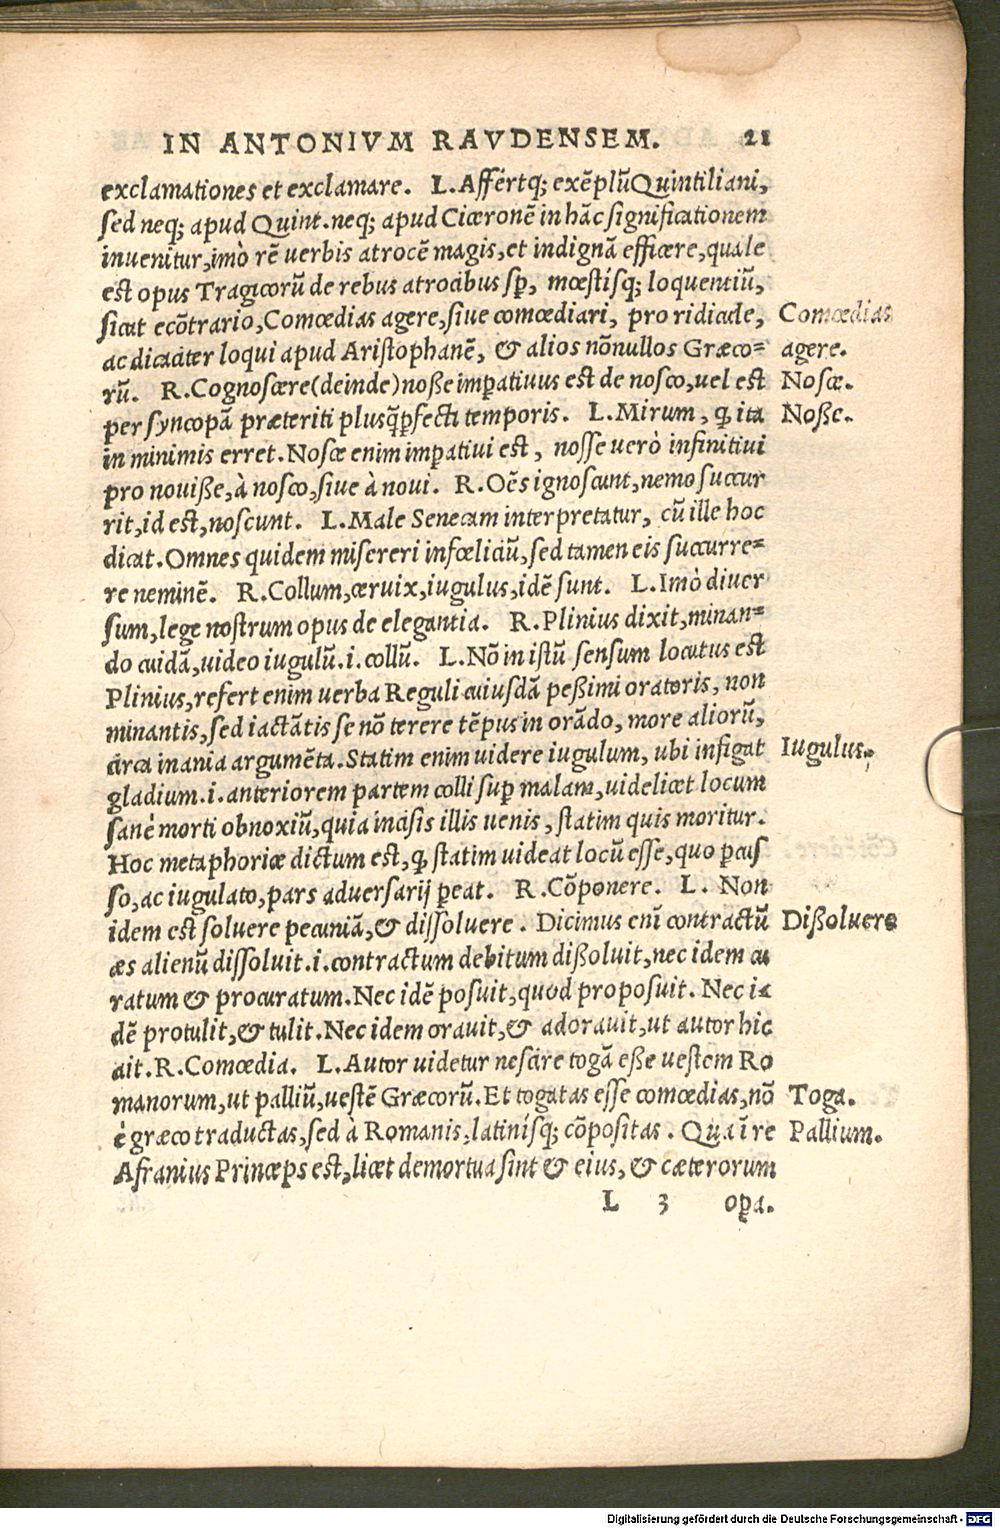 IN ANTONIVM RAVDENSEM. 21
exclamationes et exclamare. L. Affértq; exẽplũ Quintiliani,
sed neq; apud Quint. neq; apud Ciceronẽ in hãc significationem
inuenitur, imò rẽ uerbis atrocẽ magis, et indignã efficere, quale
est opus Tragicorũ de rebus atrocibus sp̱, mœstísq; loquentiũ,
sicut ecõtrario, Comœdias agere, siue comœdiari, pro ridicule, Comœdias
ac dicaciter loqui apud Aristophanẽ, & alios nõnullos Græco= agere.
rũ. R. Cognoscere (deinde) noße imp̱atiuus est de nosco, uel est Nosce.
per syncopã præteriti plusq̃p̱fecti temporis. L. Mirum, ꝙ ita Noße.
in minimis erret. Nosce enim imp̱atiui est, nosse uerò infinitiui
pro nouiße, à nosco, siue à noui. R. Oẽs ignoscunt, nemo succur
rit, id est, noscunt. L. Male Senecam interpretatur, cũ ille hoc
dicat. Omnes quidem misereri infœliciũ, sed tamen eis succurre=
re neminẽ. R. Collum, ceruix, iugulus, idẽ sunt. L. Imò diuer
sum, lege nostrum opus de elegantia. R. Plinius dixit, minan=
do cuidã, uideo iugulũ .i. collũ. L. Nõ in istũ sensum locutus est
Plinius, refert enim uerba Reguli cuiusdã peßimi oratoris, non
minantis, sed iactãtis se nõ terere tẽpus in orãdo, more aliorũ,
circa inania argumẽta. Statim enim uidere iugulum, ubi infigat Iugulus.
gladium .i. anteriorem partem colli sup̱ malam, uidelicet locum
sanè morti obnoxiũ, quia incisis illis uenis, statim quis moritur.
Hoc metaphorice dictum est, ꝙ statim uideat locũ esse, quo p̱cus
so, ac iugulato, pars aduersarij p̱eat. R. Cõponere. L. Non
idem est soluere pecuniã, & dissoluere. Dicimus enĩ contractũ Dißoluere
æs alienũ dissoluit .i. contractum debitum dißoluit, nec idem cu
ratum & procuratum. Nec idẽ posuit, quod proposuit. Nec i‐
dẽ protulit, & tulit. Nec idem orauit, & adorauit, ut autor hic
ait. R. Comœdia. L. Autor uidetur nescire togã eße uestem Ro
manorum, ut palliũ, uestẽ Græcorũ. Et togatas esse comœdias, nõ Toga.
è græco traductas, sed à Romanis, latinísq; cõpositas. Qua ĩ re Pallium.
Afranius Princeps est, licet demortua sint & eius, & cæterorum
L 3 op̱a.
Digitalisierung gefördert durch die Deutsche Forschungsgemeinschaft - DFG